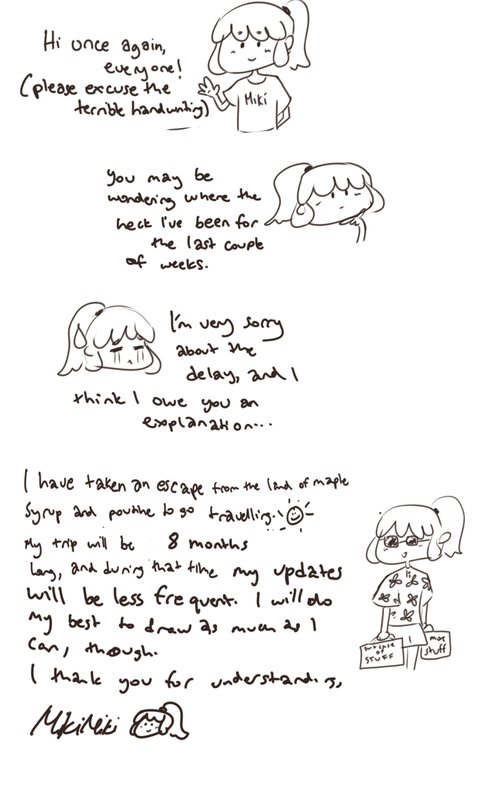 Hi once again,
everyone!
(please excuse the
terrible handwriting)
Miki
You may be
wondering where the
heck I've been for
the last couple
of weeks.
I'm very sorry
about the
delay, and I
think I owe you an
explanation...
I have taken an escape from the land of maple
syrup and poutine to go travelling.
My trip will be 8 months
long, and during that time my updates
will be less frequent. I will do
my best to draw as much as I
can, though.
I thank you for understanding,
MikiMiki
suitcase
of
STUFF
more
stuff